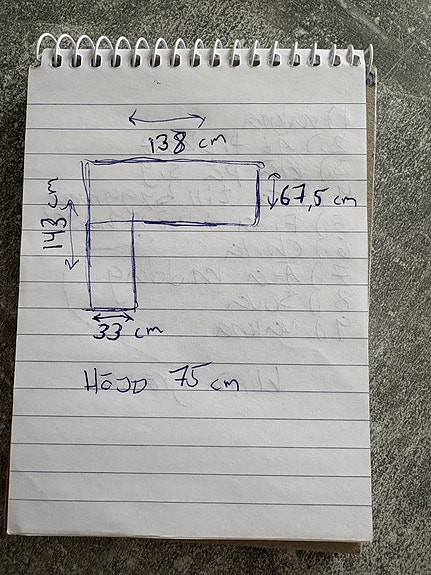 138 cm
67,5 cm
143 cm
33 cm
HÖJD 75 cm